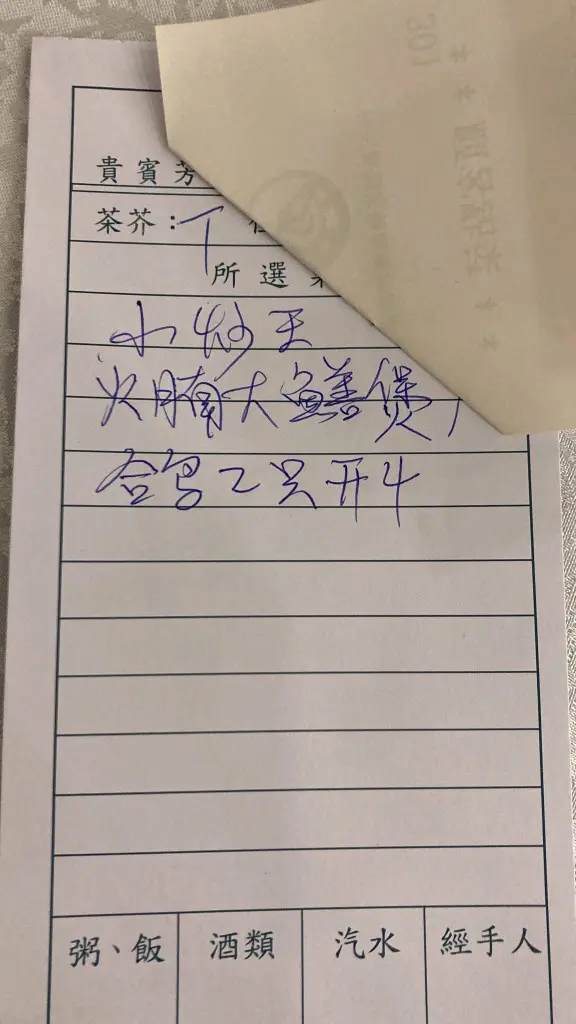 貴賓芳
茶芥：丁
所選
小炒王
火腩大鱔煲
合鸟乙只开4
粥、飯 酒類 汽水 經手人